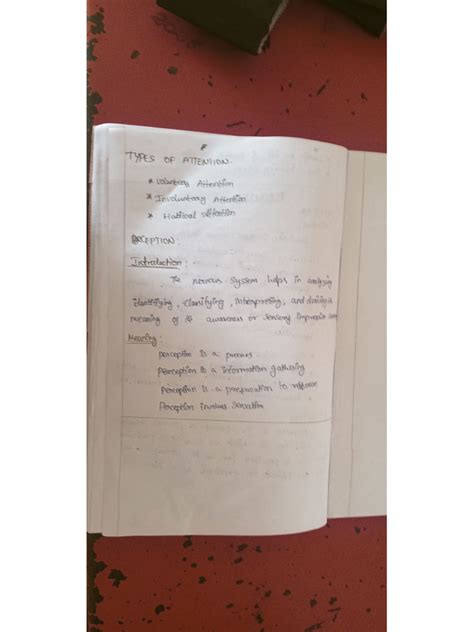 TYPES OF ATTENTION.
* Voluntary Attention
* Involuntary Attention
* Habitual attention
PERCEPTION:
Introduction:
The nervous system helps in analyzing
identifying, classifying, interpreting, and deriving
meaning of the awareness or sensory impression
Meaning:
perception is a process
Perception is a information gathering
Perception is a preparation to response
Perception involves sensation